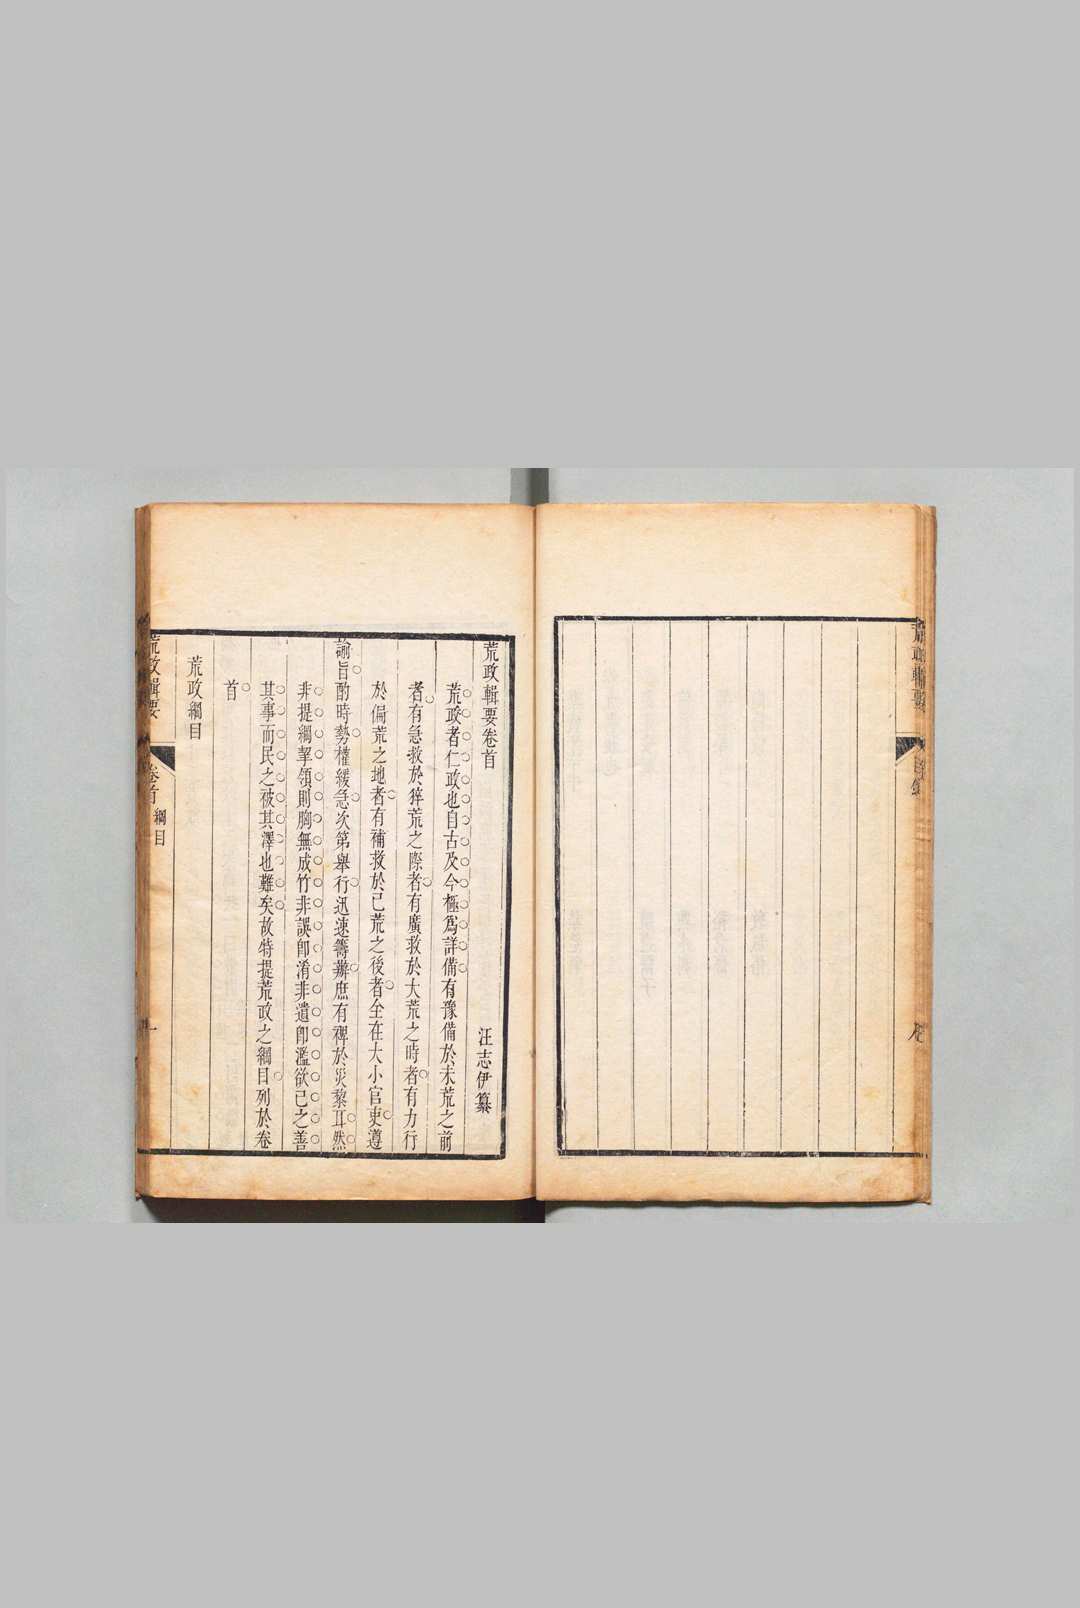 荒政輯要
荒政輯要卷首
汪志伊纂
荒政者仁政也自古及今極爲詳備有豫備於未荒之前
者有急救於猝荒之際者有廣救於大荒之時者有力行
於偏荒之地者有補救於已荒之後者全在大小官吏遵
諭旨酌時勢權緩急次第舉行迅速籌辦庶有裨於災黎耳然
非提綱挈領則胸無成竹非誤卽淆非遺卽濫欲己之善
其事而民之被其澤也難矣故特提荒政之綱目列於卷
首
荒政綱目
荒政輯要
卷首
綱目
一